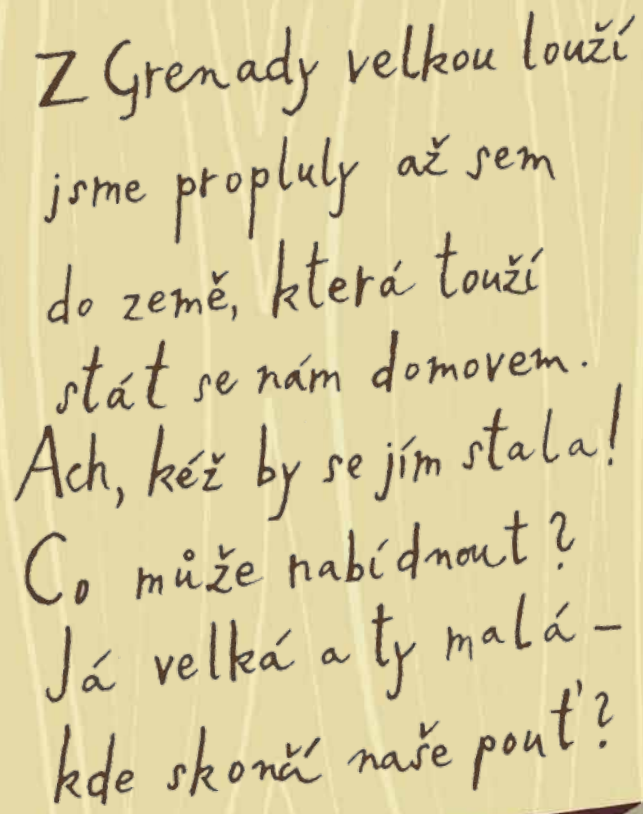 Z Grenady velkou louží
jsme propluly až sem
do země, která touží
stát se nám domovem.
Ach, kéž by se jím stala!
Co může nabídnout?
Já velká a ty malá –
kde skončí naše pouť?